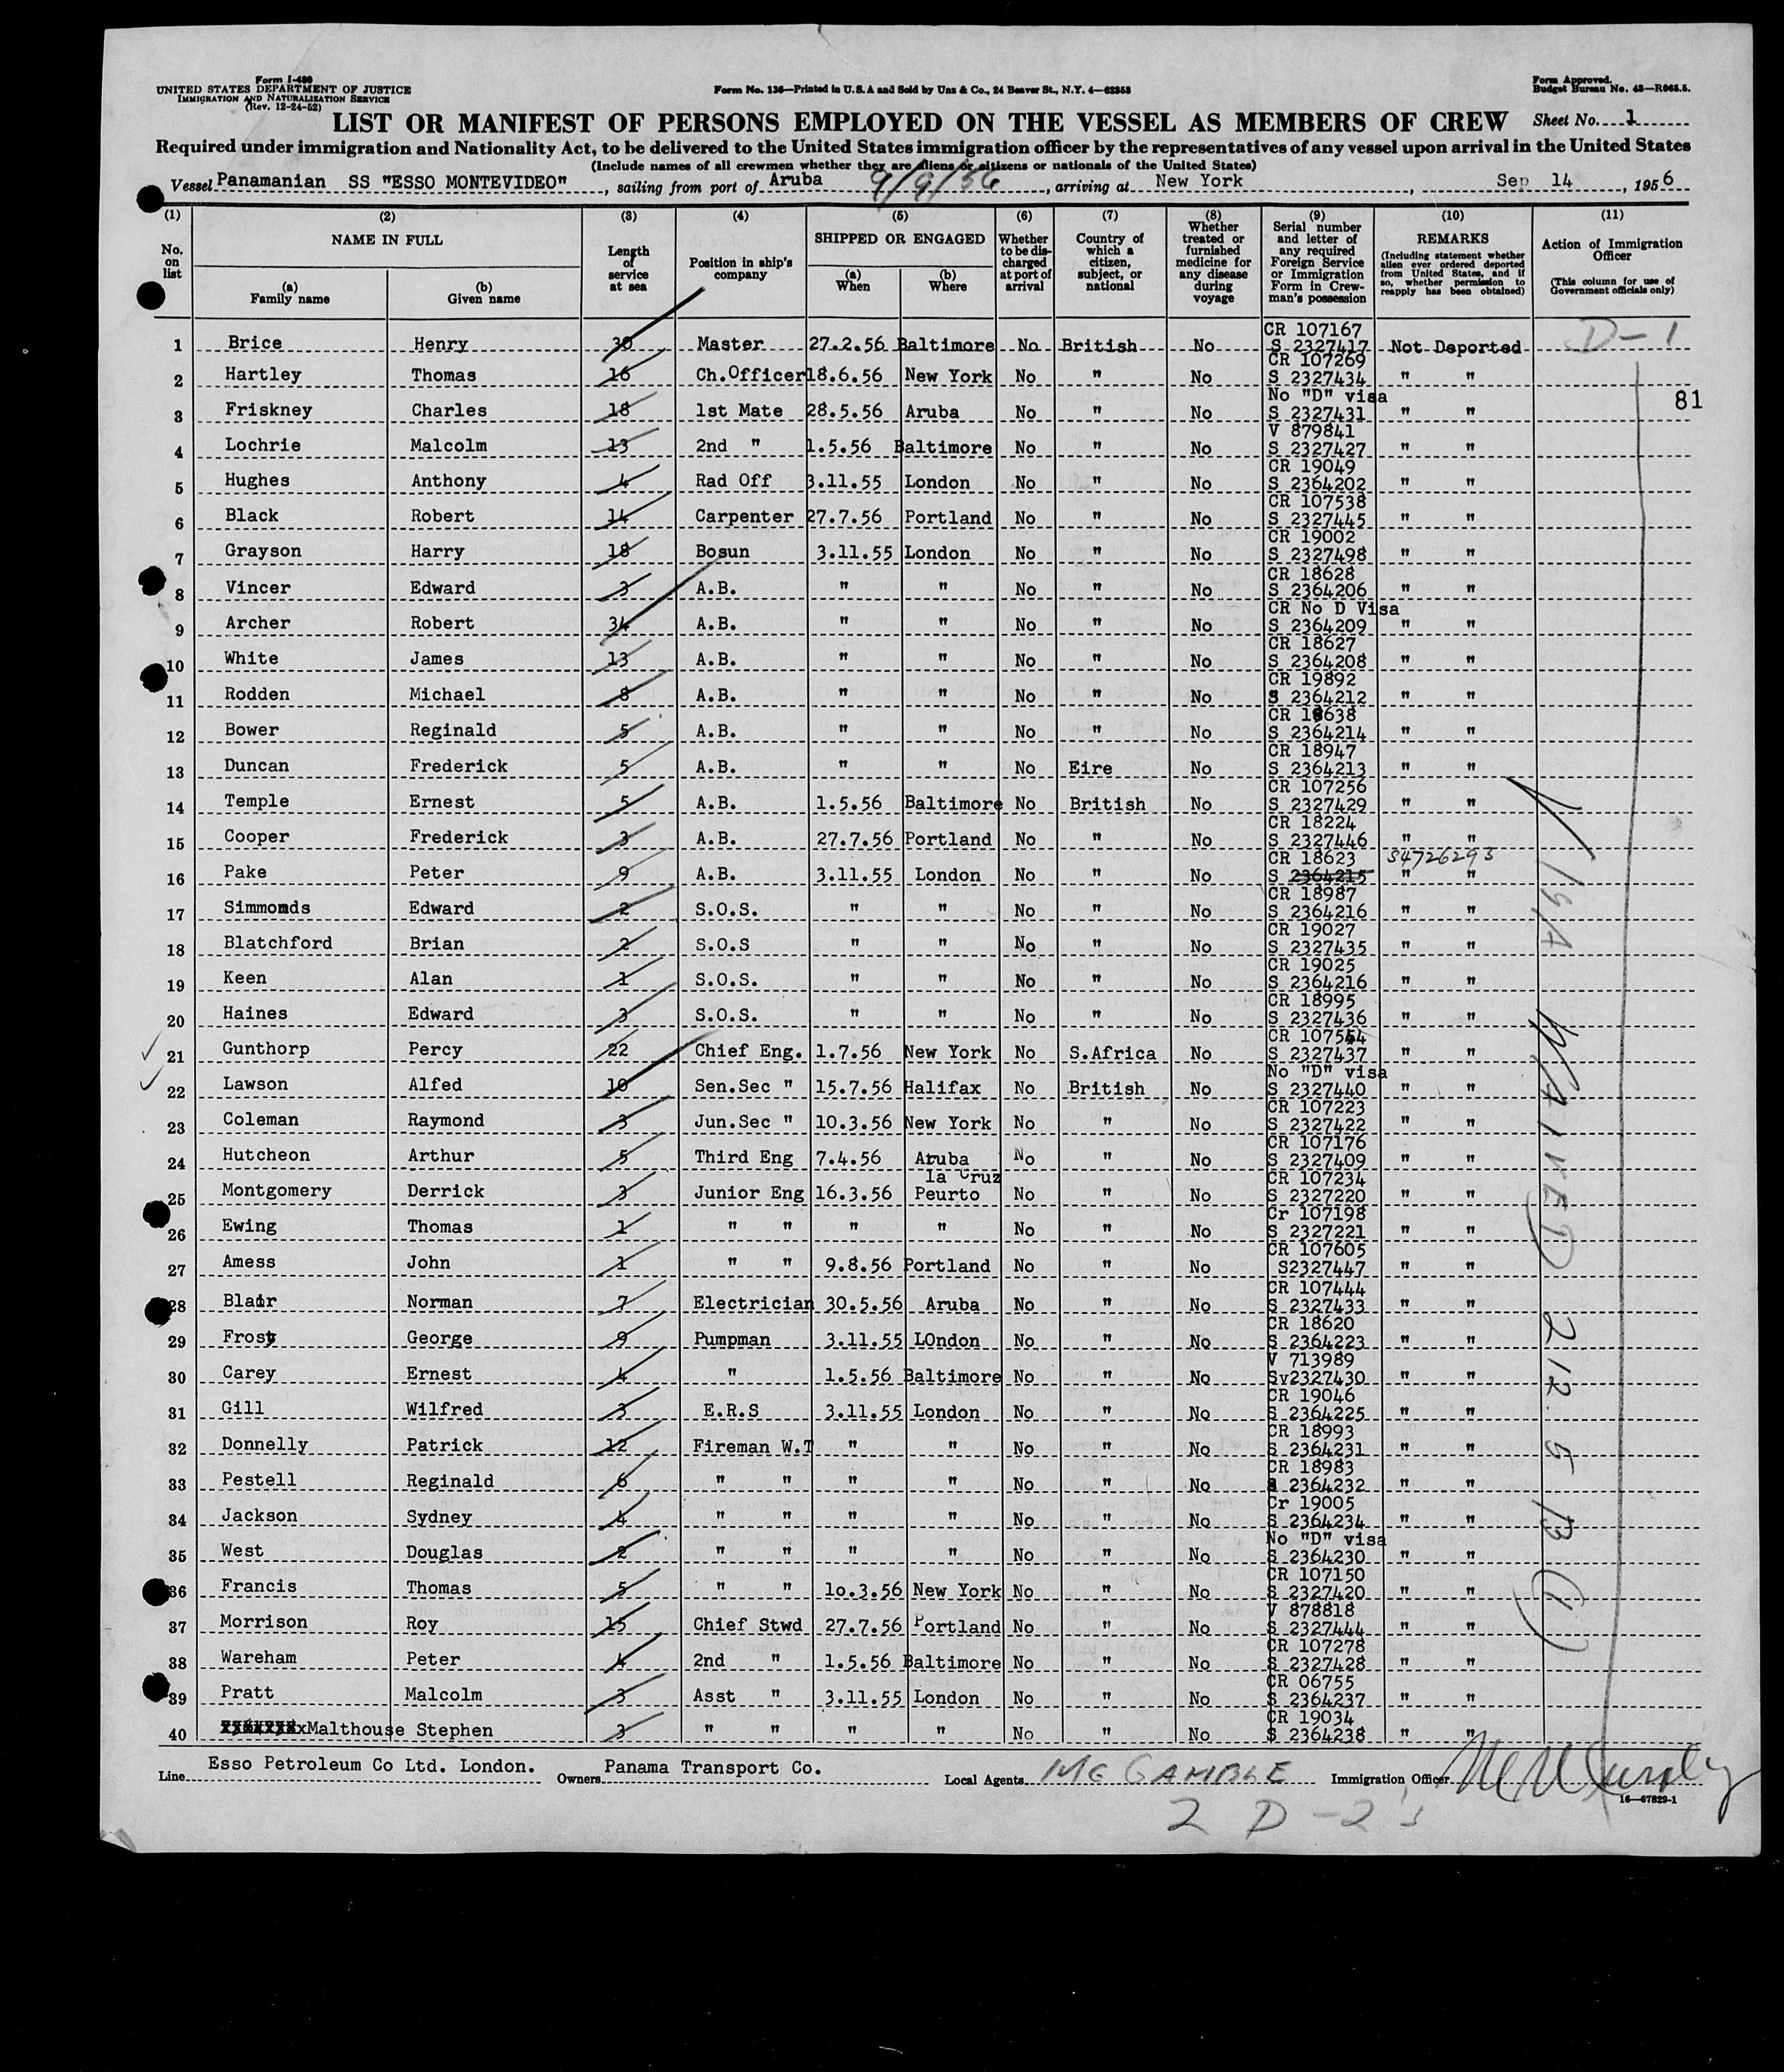 Form I-480
UNITED STATES DEPARTMENT OF JUSTICE
IMMIGRATION AND NATURALIZATION SERVICE
(Rev. 12-24-52)
Form No. 136—Printed in U.S.A and Sold by Unz & Co., 24 Beaver St., N.Y. 4—62353
Form Approved.
Budget Bureau No. 43—R065.5.
LIST OR MANIFEST OF PERSONS EMPLOYED ON THE VESSEL AS MEMBERS OF CREW Sheet No. 1
Required under immigration and Nationality Act, to be delivered to the United States immigration officer by the representatives of any vessel upon arrival in the United States
(Include names of all crewmen whether they are aliens or citizens or nationals of the United States)
Vessel Panamanian SS "ESSO MONTEVIDEO", sailing from port of Aruba 9/9/56, arriving at New York, Sep 14, 1956
(1) No. on list
(2) NAME IN FULL
(a) Family name
(b) Given name
(3) Length of service at sea
(4) Position in ship's company
(5) SHIPPED OR ENGAGED
(a) When
(b) Where
(6) Whether to be discharged at port of arrival
(7) Country of which a citizen, subject, or national
(8) Whether treated or furnished medicine for any disease during voyage
(9) Serial number and letter of any required Foreign Service or Immigration Form in Crewman's possession
(10) REMARKS (Including statement whether alien ever ordered deported from United States, and if so, whether permission to reapply has been obtained)
(11) Action of Immigration Officer (This column for use of Government officials only)
1 Brice Henry 30 Master 27.2.56 Baltimore No British No CR 107167 S 2327417 Not Deported D-1
2 Hartley Thomas 16 Ch.Officer 18.6.56 New York No " No CR 107269 S 2327434 " "
81
3 Friskney Charles 18 1st Mate 28.5.56 Aruba No " No No "D" visa S 2327431 " "
4 Lochrie Malcolm 13 2nd " 1.5.56 Baltimore No " No V 879841 S 2327427 " "
5 Hughes Anthony 4 Rad Off 3.11.55 London No " No CR 19049 S 2364202 " "
6 Black Robert 14 Carpenter 27.7.56 Portland No " No CR 107538 S 2327445 " "
7 Grayson Harry 18 Bosun 3.11.55 London No " No CR 19002 S 2327498 " "
8 Vincer Edward 3 A.B. " " No " No CR 18628 S 2364206 " "
9 Archer Robert 34 A.B. " " No " No CR No D Visa S 2364209 " "
10 White James 13 A.B. " " No " No CR 18627 S 2364208 " "
11 Rodden Michael 8 A.B. " " No " No CR 19892 S 2364212 " "
12 Bower Reginald 5 A.B. " " No " No CR 18638 S 2364214 " "
13 Duncan Frederick 5 A.B. " " No Eire No CR 18947 S 2364213 " "
14 Temple Ernest 5 A.B. 1.5.56 Baltimore No British No CR 107256 S 2327429 " "
15 Cooper Frederick 3 A.B. 27.7.56 Portland No " No CR 18224 S 2327446 " "
16 Pake Peter 9 A.B. 3.11.55 London No " No CR 18623 S 2364215 S4726293 " "
17 Simmonds Edward 2 S.O.S. " " No " No CR 18987 S 2364216 " "
18 Blatchford Brian 2 S.O.S " " No " No CR 19027 S 2327435 " "
19 Keen Alan 1 S.O.S. " " No " No CR 19025 S 2364216 " "
20 Haines Edward 3 S.O.S. " " No " No CR 18995 S 2327436 " "
21 Gunthorp Percy 22 Chief Eng. 1.7.56 New York No S.Africa No CR 107544 S 2327437 " "
22 Lawson Alfed 10 Sen.Sec " 15.7.56 Halifax No British No No "D" visa S 2327440 " "
23 Coleman Raymond 3 Jun.Sec " 10.3.56 New York No " No CR 107223 S 2327422 " "
24 Hutcheon Arthur 5 Third Eng 7.4.56 Aruba No " No CR 107176 S 2327409 " "
25 Montgomery Derrick 3 Junior Eng 16.3.56 la Cruz Peurto No " No CR 107234 S 2327220 " "
26 Ewing Thomas 1 " " " " No " No Cr 107198 S 2327221 " "
27 Amess John 1 " " 9.8.56 Portland No " No CR 107605 S2327447 " "
28 Blair Norman 7 Electrician 30.5.56 Aruba No " No CR 107444 S 2327433 " "
29 Frost George 9 Pumpman 3.11.55 LOndon No " No CR 18620 S 2364223 " "
30 Carey Ernest 4 " 1.5.56 Baltimore No " No V 713989 Sv2327430 " "
31 Gill Wilfred 3 E.R.S 3.11.55 London No " No CR 19046 S 2364225 " "
32 Donnelly Patrick 12 Fireman W.T " " No " No CR 18993 S 2364231 " "
33 Pestell Reginald 6 " " " " No " No CR 18983 S 2364232 " "
34 Jackson Sydney 4 " " " " No " No Cr 19005 S 2364234 " "
35 West Douglas 2 " " " " No " No No "D" visa S 2364230 " "
36 Francis Thomas 5 " " 1o.3.56 New York No " No CR 107150 S 2327420 " "
37 Morrison Roy 15 Chief Stwd 27.7.56 Portland No " No V 878818 S 2327444 " "
38 Wareham Peter 4 2nd " 1.5.56 Baltimore No " No CR 107278 S 2327428 " "
39 Pratt Malcolm 3 Asst " 3.11.55 London No " No CR 06755 S 2364237 " "
40 Malthouse Stephen 3 " " " " No " No CR 19034 S 2364238 " "
WAIVED 212.5 B (1)
Line Esso Petroleum Co Ltd. London. Owners Panama Transport Co. Local Agents Mc GAMBLE Immigration Officer
16—67829-1
2 D-2's